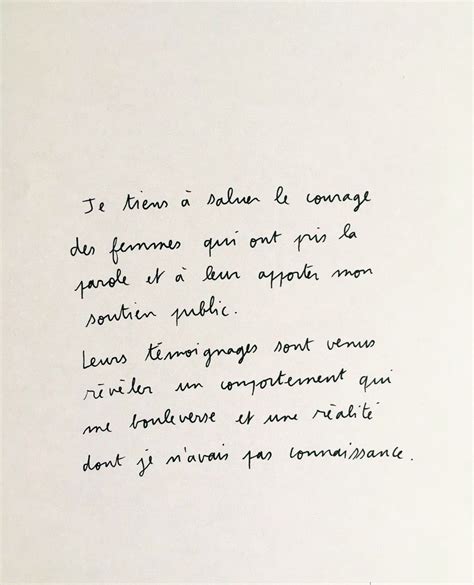 Je tiens à saluer le courage
des femmes qui ont pris la
parole et à leur apporter mon
soutien public.
Leurs témoignages sont venus
révéler un comportement qui
me bouleverse et une réalité
dont je n'avais pas connaissance.